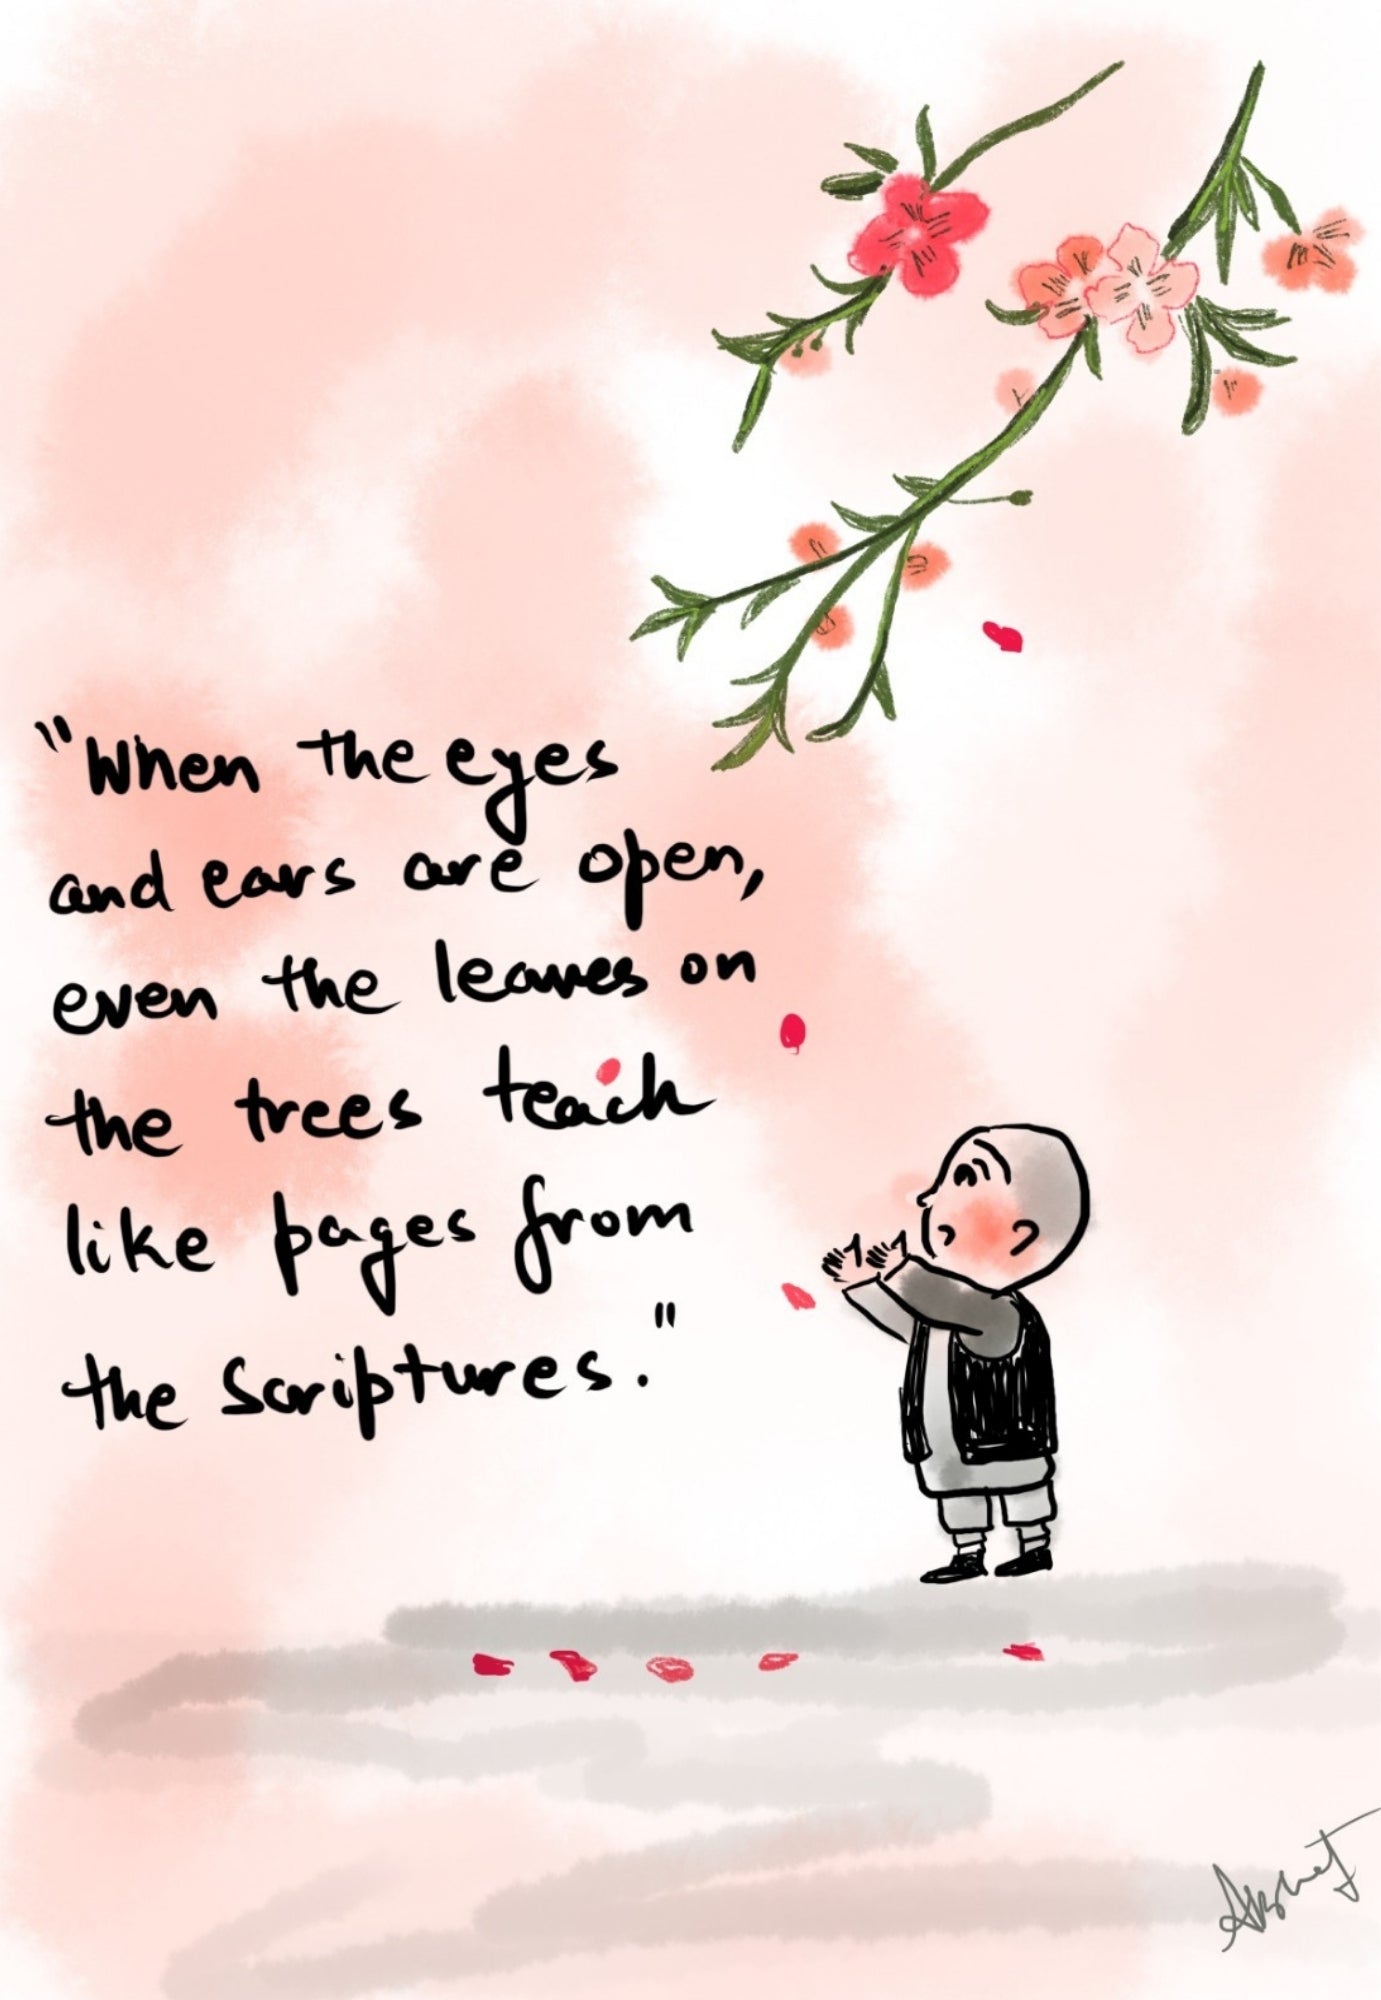 "When the eyes
and ears are open,
even the leaves on
the trees teach
like pages from
the Scriptures."